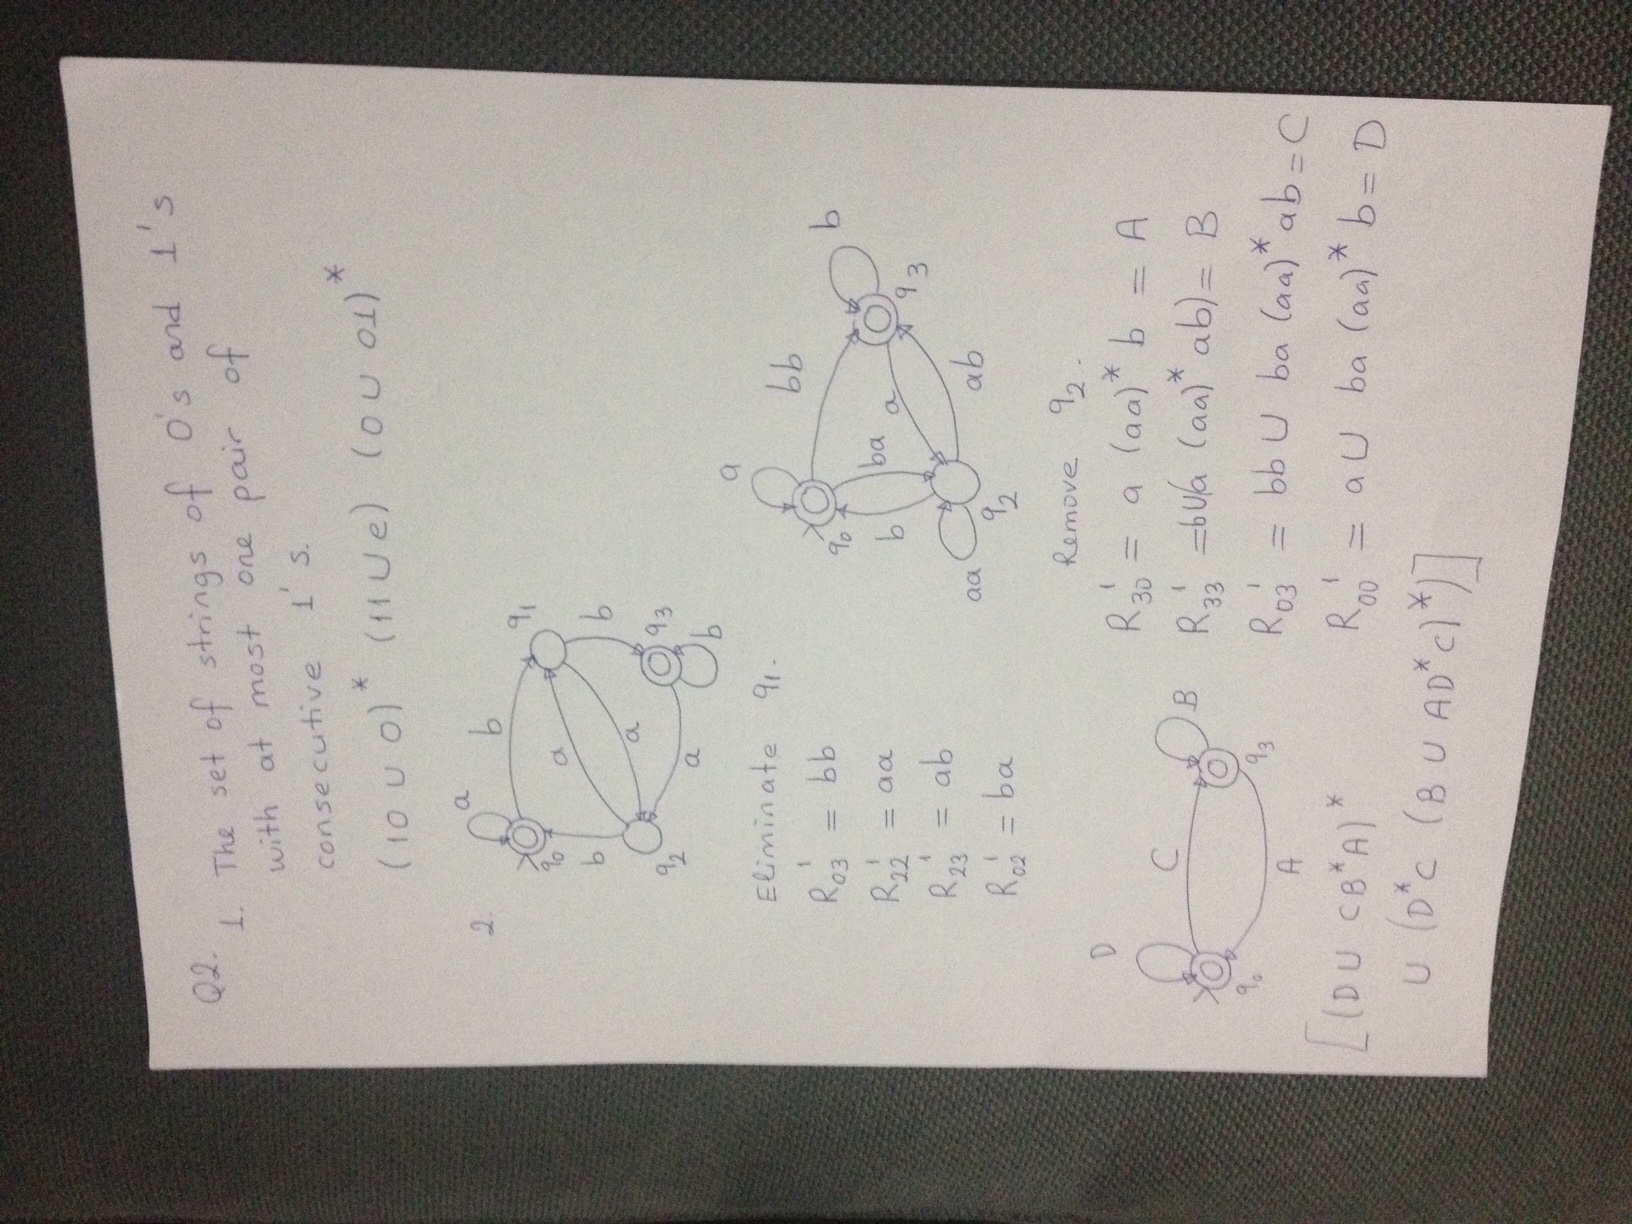 Q2.
1. The set of strings of 0's and 1's
with at most one pair of
consecutive 1's.
(10 ∪ 0)* (11 ∪ e) (0 ∪ 01)*
2.
a
b
q₁
q₀
a
b
b
a
q₂
q₃
a
b
Eliminate q₁.
R₀₃¹ = bb
R₂₂¹ = aa
R₂₃¹ = ab
R₀₂¹ = ba
a
bb
b
q₀
b
ba
a
q₃
aa
ab
q₂
Remove q₂.
R₃₀¹ = a (aa)* b = A
R₃₃¹ = b∪(a (aa)* ab) = B
R₀₃¹ = bb ∪ ba (aa)* ab = C
R₀₀¹ = a ∪ ba (aa)* b = D
D
C
B
q₀
q₃
A
[(D ∪ CB*A)*
∪ (D*C (B ∪ AD*C)*)]